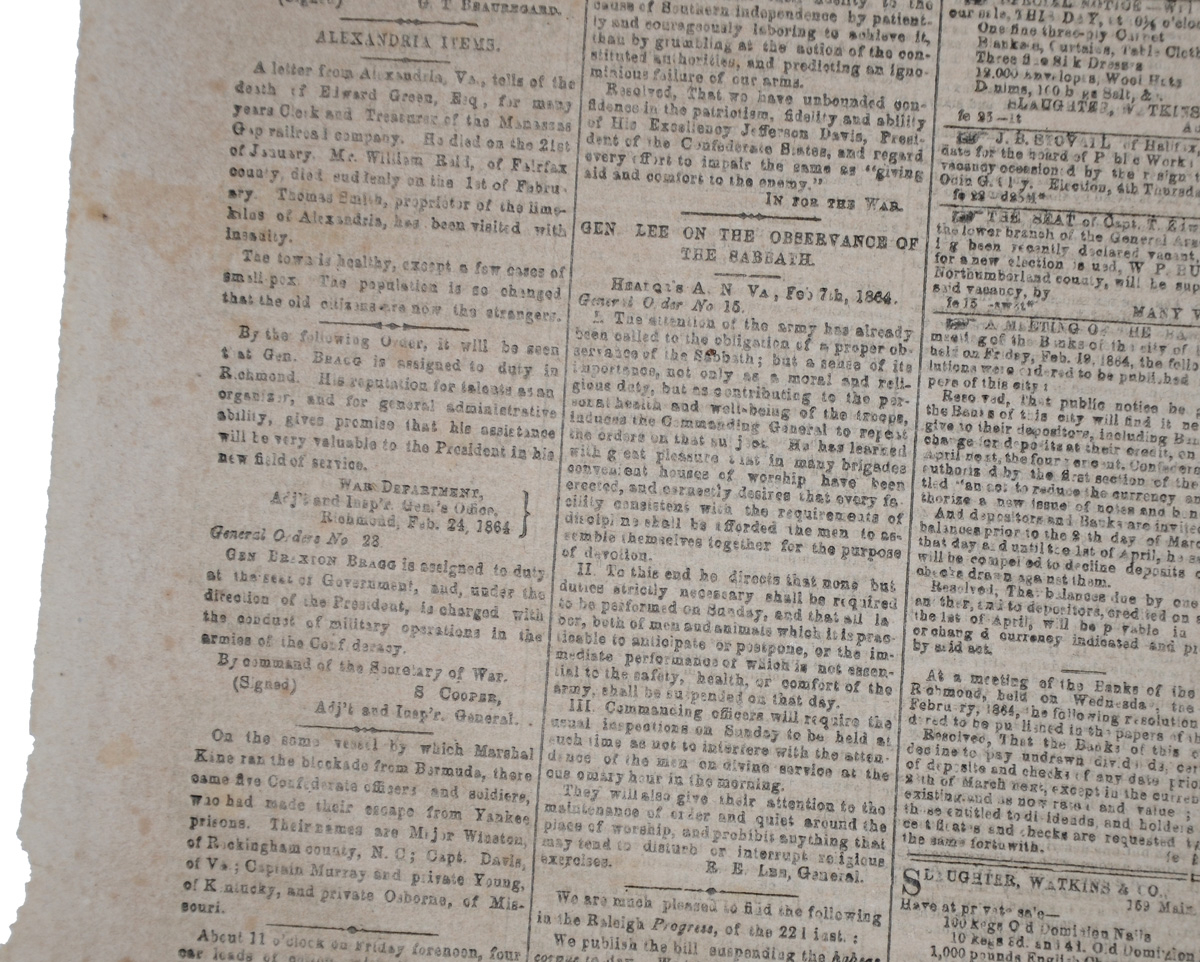 (Signed) G. T. BEAUREGARD.
ALEXANDRIA ITEMS.
A letter from Alexandria, Va., tells of the
death of Edward Green, Esq., for many
years Clerk and Treasurer of the Manassas
Gap railroad company. He died on the 21st
of January. Mr. William Reid, of Fairfax
county, died suddenly on the 1st of Febru-
ary. Thomas Smith, proprietor of the lime-
kilns of Alexandria, has been visited with
insanity.
The town is healthy, except a few cases of
small pox. The population is so changed
that the old citizens are now the strangers.
By the following Order, it will be seen
that Gen. BRAGG is assigned to duty in
Richmond. His reputation for talents as an
organizer, and for general administrative
ability, gives promise that his assistance
will be very valuable to the President in his
new field of service.
WAR DEPARTMENT,
Adj't and Insp'r. Gen.'s Office,
Richmond, Feb. 24, 1864
General Orders No 23
GEN BRAXTON BRAGG is assigned to duty
at the seat of Government, and, under the
direction of the President, is charged with
the conduct of military operations in the
armies of the Confederacy.
By command of the Secretary of War.
(Signed) S COOPER,
Adj't and Insp'r. General.
On the same vessel by which Marshal
Kane ran the blockade from Bermuda, there
came five Confederate officers and soldiers,
who had made their escape from Yankee
prisons. Their names are Major Winston,
of Rockingham county, N. C; Capt. Davis,
of Va; Captain Murray and private Young,
of Kentucky, and private Osborne, of Mis-
souri.
About 11 o'clock on Friday forenoon, four
car loads of
cause of Southern independence by patient-
ly and courageously laboring to achieve it,
than by grumbling at the action of the con-
stituted authorities, and predicting an igno-
minious failure of our arms.
Resolved, That we have unbounded con-
fidence in the patriotism, fidelity and ability
of His Excellency Jefferson Davis, Presi-
dent of the Confederate States, and regard
every effort to impair the same as "giving
aid and comfort to the enemy."
IN FOR THE WAR.
GEN. LEE ON THE OBSERVANCE OF
THE SABBATH.
HEADQR'S A. N. VA, Feb 7th, 1864.
General Order No 15.
I. The attention of the army has already
been called to the obligation of a proper ob-
servance of the Sabbath; but a sense of its
importance, not only as a moral and reli-
gious duty, but as contributing to the per-
sonal health and well-being of the troops,
induces the Commanding General to repeat
the orders on that subject. He has learned
with great pleasure that in many brigades
convenient houses of worship have been
erected, and earnestly desires that every fa-
cility consistent with the requirements of
discipline shall be afforded the men to as-
semble themselves together for the purpose
of devotion.
II. To this end he directs that none but
duties strictly necessary shall be required
to be performed on Sunday, and that all la-
bor, both of men and animals which it is prac-
ticable to anticipate or postpone, or the im-
mediate performance of which is not essen-
tial to the safety, health, or comfort of the
army, shall be suspended on that day.
III. Commanding officers will require the
usual inspections on Sunday to be held at
such time as not to interfere with the atten-
dance of the men on divine service at the
customary hour in the morning.
They will also give their attention to the
maintenance of order and quiet around the
place of worship, and prohibit anything that
may tend to disturb or interrupt religious
exercises.
R. E. LEE, General.
We are much pleased to find the following
in the Raleigh Progress, of the 22d inst.:
We publish the bill suspending the habeas
SPECIAL NOTICE
our sale, THIS DAY, at 10½ o'clo
One fine three-ply Carpet
Blankets, Curtains, Table Cloth
Three fine Silk Dresses
12,000 Envelopes, Wool Hats
Denims, 100 bags Salt, &c.
SLAUGHTER, WATKINS
fe 25-1t
J. B. STOVALL of Halifax,
date for the board of Public Work
vacancy occasioned by the resign
Odin G. Clay. Election, 4th Thursd
THE SEAT of Capt. T.
the lower branch of the General Ass
ing been recently declared vacant,
for a new election issued, W P. BU
Northumberland county, will be sup
said vacancy, by
MANY V
A MEETING OF THE BA
meeting of the Banks of the city of
held on Friday, Feb. 19, 1864, the follo
lutions were ordered to be published
pers of this city:
Resolved, That public notice be
the Banks of this city will find it ne
give to their depositors, including Ban
change for deposits at their credit, on
April next, the four per cent. Confeder
authorized by the first section of the
tled "an act to reduce the currency an
thorize a new issue of notes and bon
And depositors and Banks are invited
balances prior to the 28th day of Marc
that day and until the 1st of April, he
will be compelled to decline deposits
checks drawn against them.
Resolved, That balances due by one
another, and to depositors, credited on
the 1st of April, will be payable in
or changed currency indicated and pr
by said act.
At a meeting of the Banks of the
Richmond, held on Wednesday, the
February, 1864, the following resolution
dered to be published in the papers of th
Resolved, That the Banks of this c
decline to pay undrawn dividends, cer
of deposite and checks of any date prior
28th of March next, except in the curren
existing, and as now rated and value;
those entitled to dividends, and holders
certificates and checks are requested
the same forthwith.
SLAUGHTER, WATKINS & CO.,
159 Main
Have at private sale—
100 kegs Old Dominion Nails
10 kegs 3d. and 4d. Old Dominion
1,000 pounds English